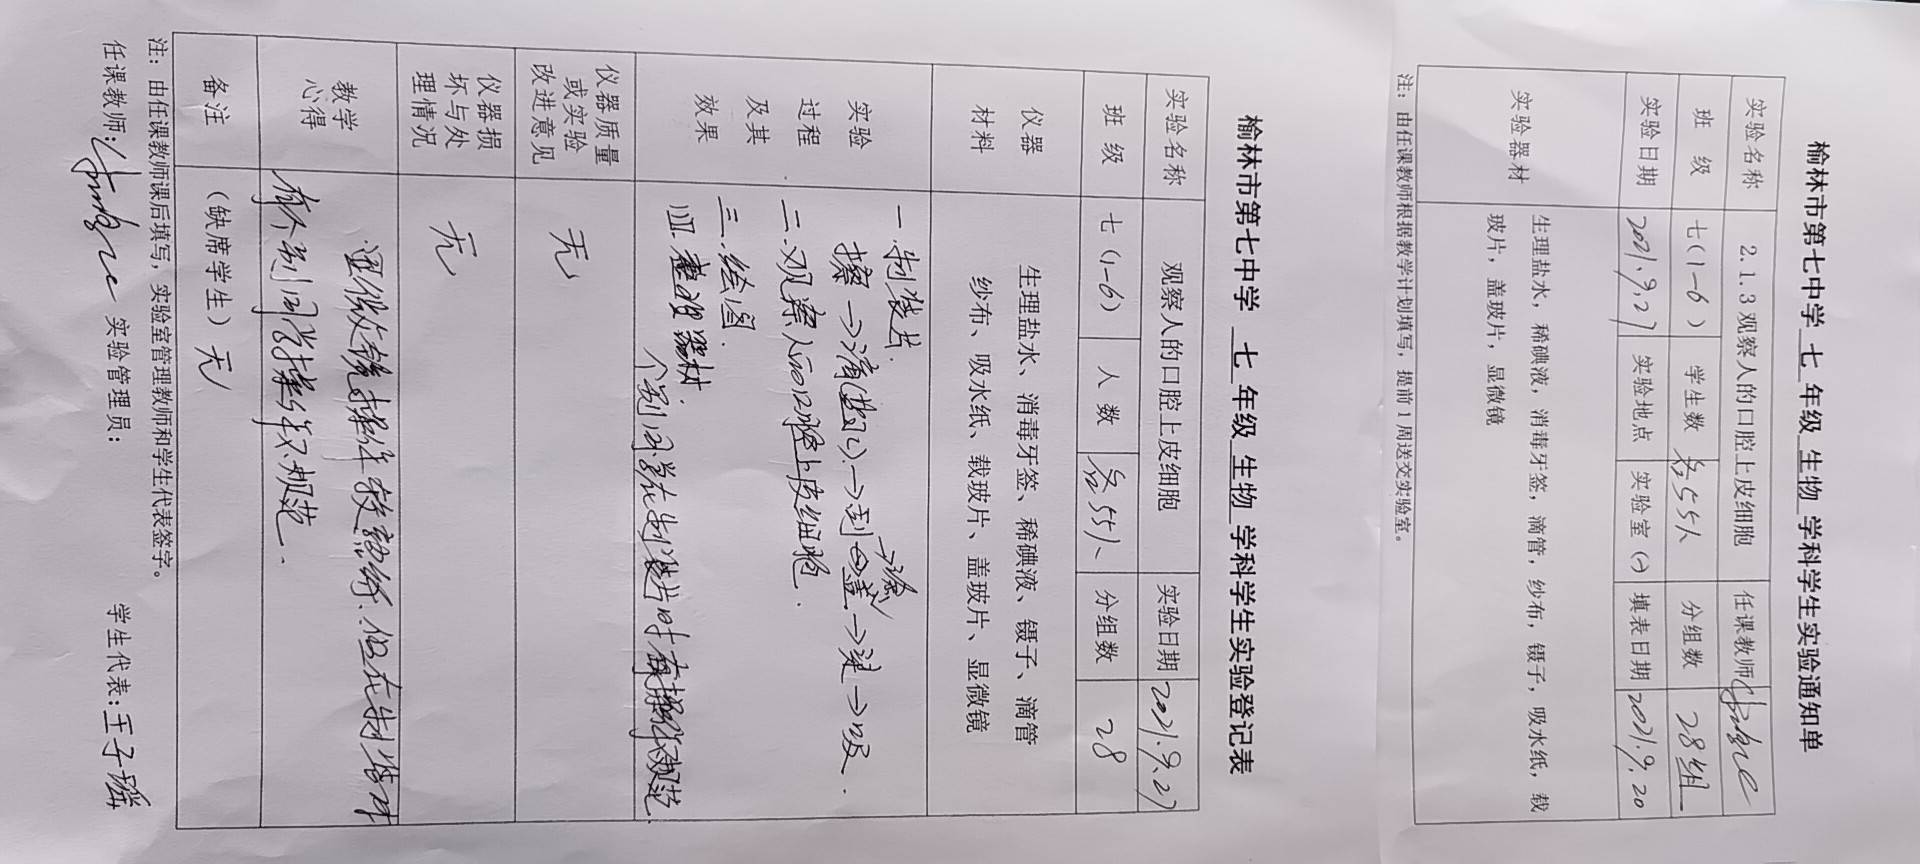 榆林市第七中学 七 年级 生物 学科学生实验通知单
实验名称 2.1.3观察人的口腔上皮细胞 任课教师
班 级 七(1-6) 学生数 各55人 分组数 28组
实验日期 2021.9.27 实验地点 实验室(一) 填表日期 2021.9.20
实验器材
生理盐水，稀碘液，消毒牙签，滴管，纱布，镊子，吸水纸，载
玻片，盖玻片，显微镜
注：由任课教师根据教学计划填写，提前1周送交实验室。
榆林市第七中学 七 年级 生物 学科学生实验登记表
实验名称 观察人的口腔上皮细胞 实验日期 2021.9.27
班 级 七(1-6) 人 数 各55人 分组数 28
仪器
材料
生理盐水、消毒牙签、稀碘液、镊子、滴管
纱布、吸水纸、载玻片、盖玻片、显微镜
实验
过程
及其
效果
一.制装片.
擦→滴→刮→涂→盖→染→吸.
二.观察人的口腔上皮细胞.
三.绘图.
四.整理器材.
个别同学在制装片时操作不规范.
仪器质量
或实验
改进意见
无
仪器损
坏与处
理情况
无
教学
心得
显微镜操作较熟练.但在制片时
有个别同学操作不规范.
备注
(缺席学生) 无
注：由任课教师课后填写，实验室管理教师和学生代表签字。
任课教师: 实验管理员: 学生代表:王子